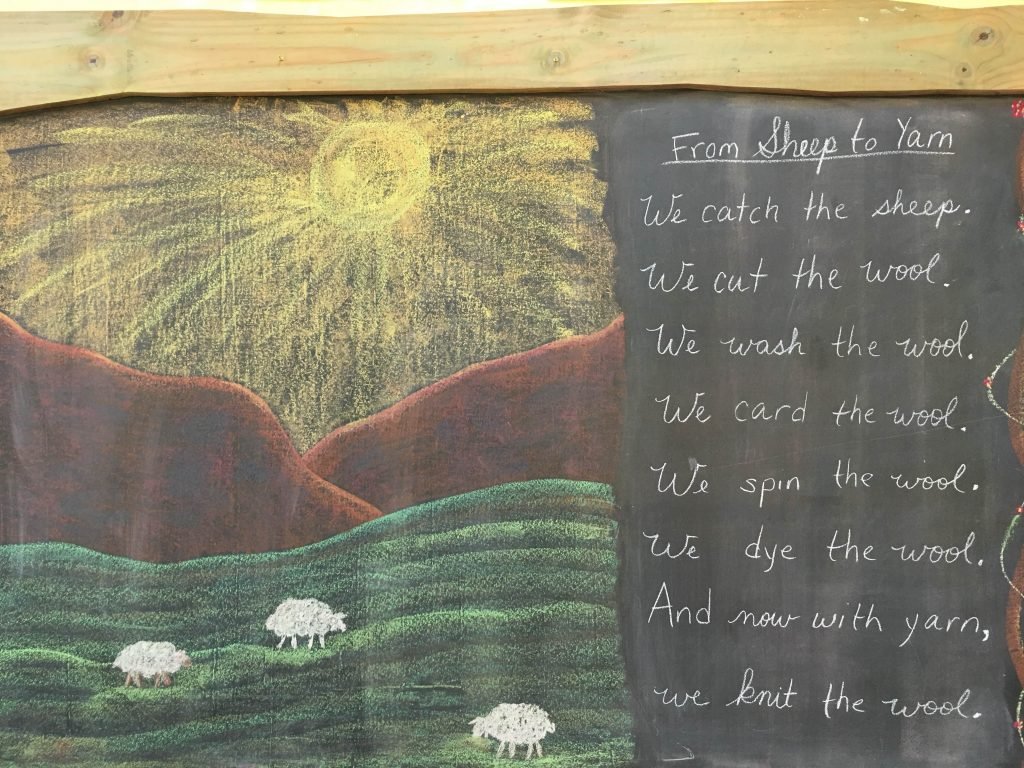 From Sheep to Yarn
We catch the sheep.
We cut the wool.
We wash the wool.
We card the wool.
We spin the wool.
We dye the wool.
And now with yarn,
we knit the wool.